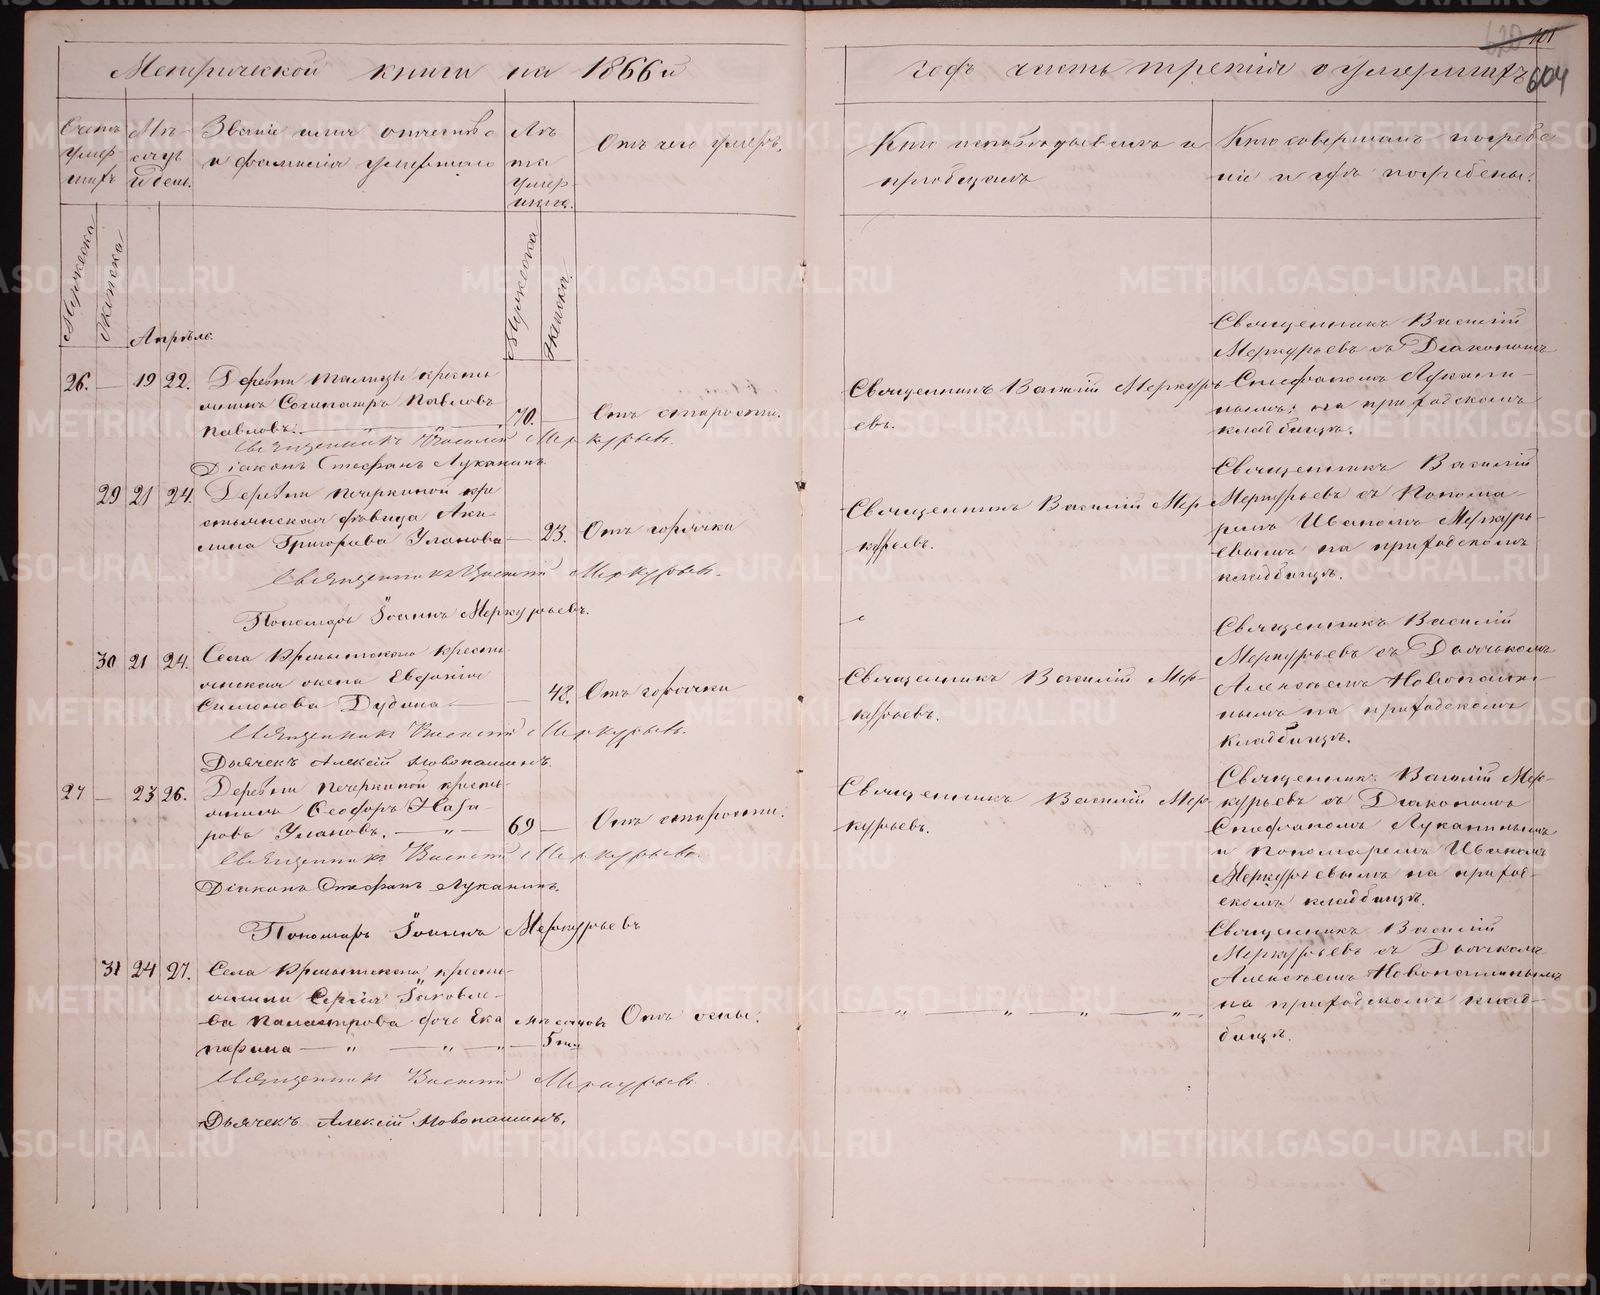 101
604
Метрической книги на 1866й
годъ часть третія о умершихъ
Счетъ умершихъ
Мѣсяцъ и день.
Званіе имя отчество
и фамилія умершаго
Лѣта умершаго.
Отъ чего умеръ.
Кто исповѣдывалъ и
пріобщалъ
Кто совершалъ погребе
ніе и гдѣ погребены.
Мужеска
Женска
Мужеска
Женска.
Апрѣль
26. — 19 22. Деревни Талицы кресть
янинъ Сосипатръ Павловъ
Павловъ. — 70. — Отъ старости.
Священникъ Василій Меркурьевъ.
Діаконъ Стефанъ Луканинъ
Священникъ Василій Меркурь
евъ.
Священникъ Василій
Меркурьевъ съ Діакономъ
Стефаномъ Лукани-
нымъ; на приходскомъ
кладбищѣ.
29 21 24. Деревни Печеркиной кре
стьянская дѣвица Аки-
лина Григорьева Уланова — 23. Отъ горячки
Священникъ Василій Меркурьевъ.
Пономарь Іоаннъ Меркурьевъ.
Священникъ Василій Мер-
курьевъ.
Священникъ Василій
Меркурьевъ съ Понома-
ремъ Иваномъ Меркурь-
евымъ на приходскомъ
кладбищѣ.
30 21 24. Села крестья
янская жена Евфимія
Симонова Дудина — 42. Отъ горячки
Священникъ Василій Меркурьевъ.
Дьячекъ Алексій Новопашинъ.
Священникъ Василій Мер-
курьевъ.
Священникъ Василій
Меркурьевъ съ Дьячкомъ
Алексѣемъ Новопаши-
нымъ на приходскомъ
кладбищѣ.
27 — 23 26. Деревни Печеркиной кресть-
янинъ Ѳеодоръ Наза-
ровъ Улановъ. — „ — 69 — Отъ старости.
Священникъ Василій Меркурьевъ.
Діаконъ Стефанъ Луканинъ.
Пономарь Іоаннъ Меркурьевъ
Священникъ Василій Мер-
курьевъ.
Священникъ Василій Мер-
курьевъ съ Діакономъ
Стефаномъ Луканинымъ
и Пономаремъ Иваномъ
Меркурьевымъ на приход-
скомъ кладбищѣ.
31 24 27. Села кресть-
янина Сергія Іаковле-
ва дочь Ека
терина — „ — „ — „ — мѣсяцовъ 5ти Отъ оспы.
Священникъ Василій Меркурьевъ.
Дьячекъ Алексій Новопашинъ.
— „ — „ — „ — „ —
Священникъ Василій
Меркурьевъ съ Дьячкомъ
Алексѣемъ Новопашинымъ
на приходскомъ клад-
бищѣ.
METRIKI.GASO-URAL.RU